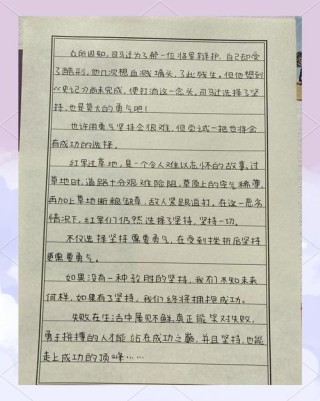 众所周知，司马迁为了那一位将军辩护，自己却受
了酷刑，他几次想血溅墙头，了此残生。但他想到
《史记》尚未完成，便打消这一念头，司马迁选择了坚
持，也是莫大的勇气吧！
也许用勇气坚持会很难，但尝试一把也将会
有成功的选择。
红军过草地，是一个令人难以忘怀的故事。过
草地时，道路十分艰难险阻，草原上的空气稀薄，
再加上草地断粮缺草，敌人紧跟追打，在这一恶劣
情况下，红军们仍然选择了坚持，坚持一切。
不仅选择坚持需要勇气，在受到挫折后坚持
更需要勇气。
如果没有一种敢胜的坚持，我们不知未来
何样，如果有了坚持，我们终将拥抱成功。
失败在生活中屡见不鲜，真正能坚对失败，
勇于拼搏的人才能站在成功之巅，并且坚持，也能
走上成功的顶峰……